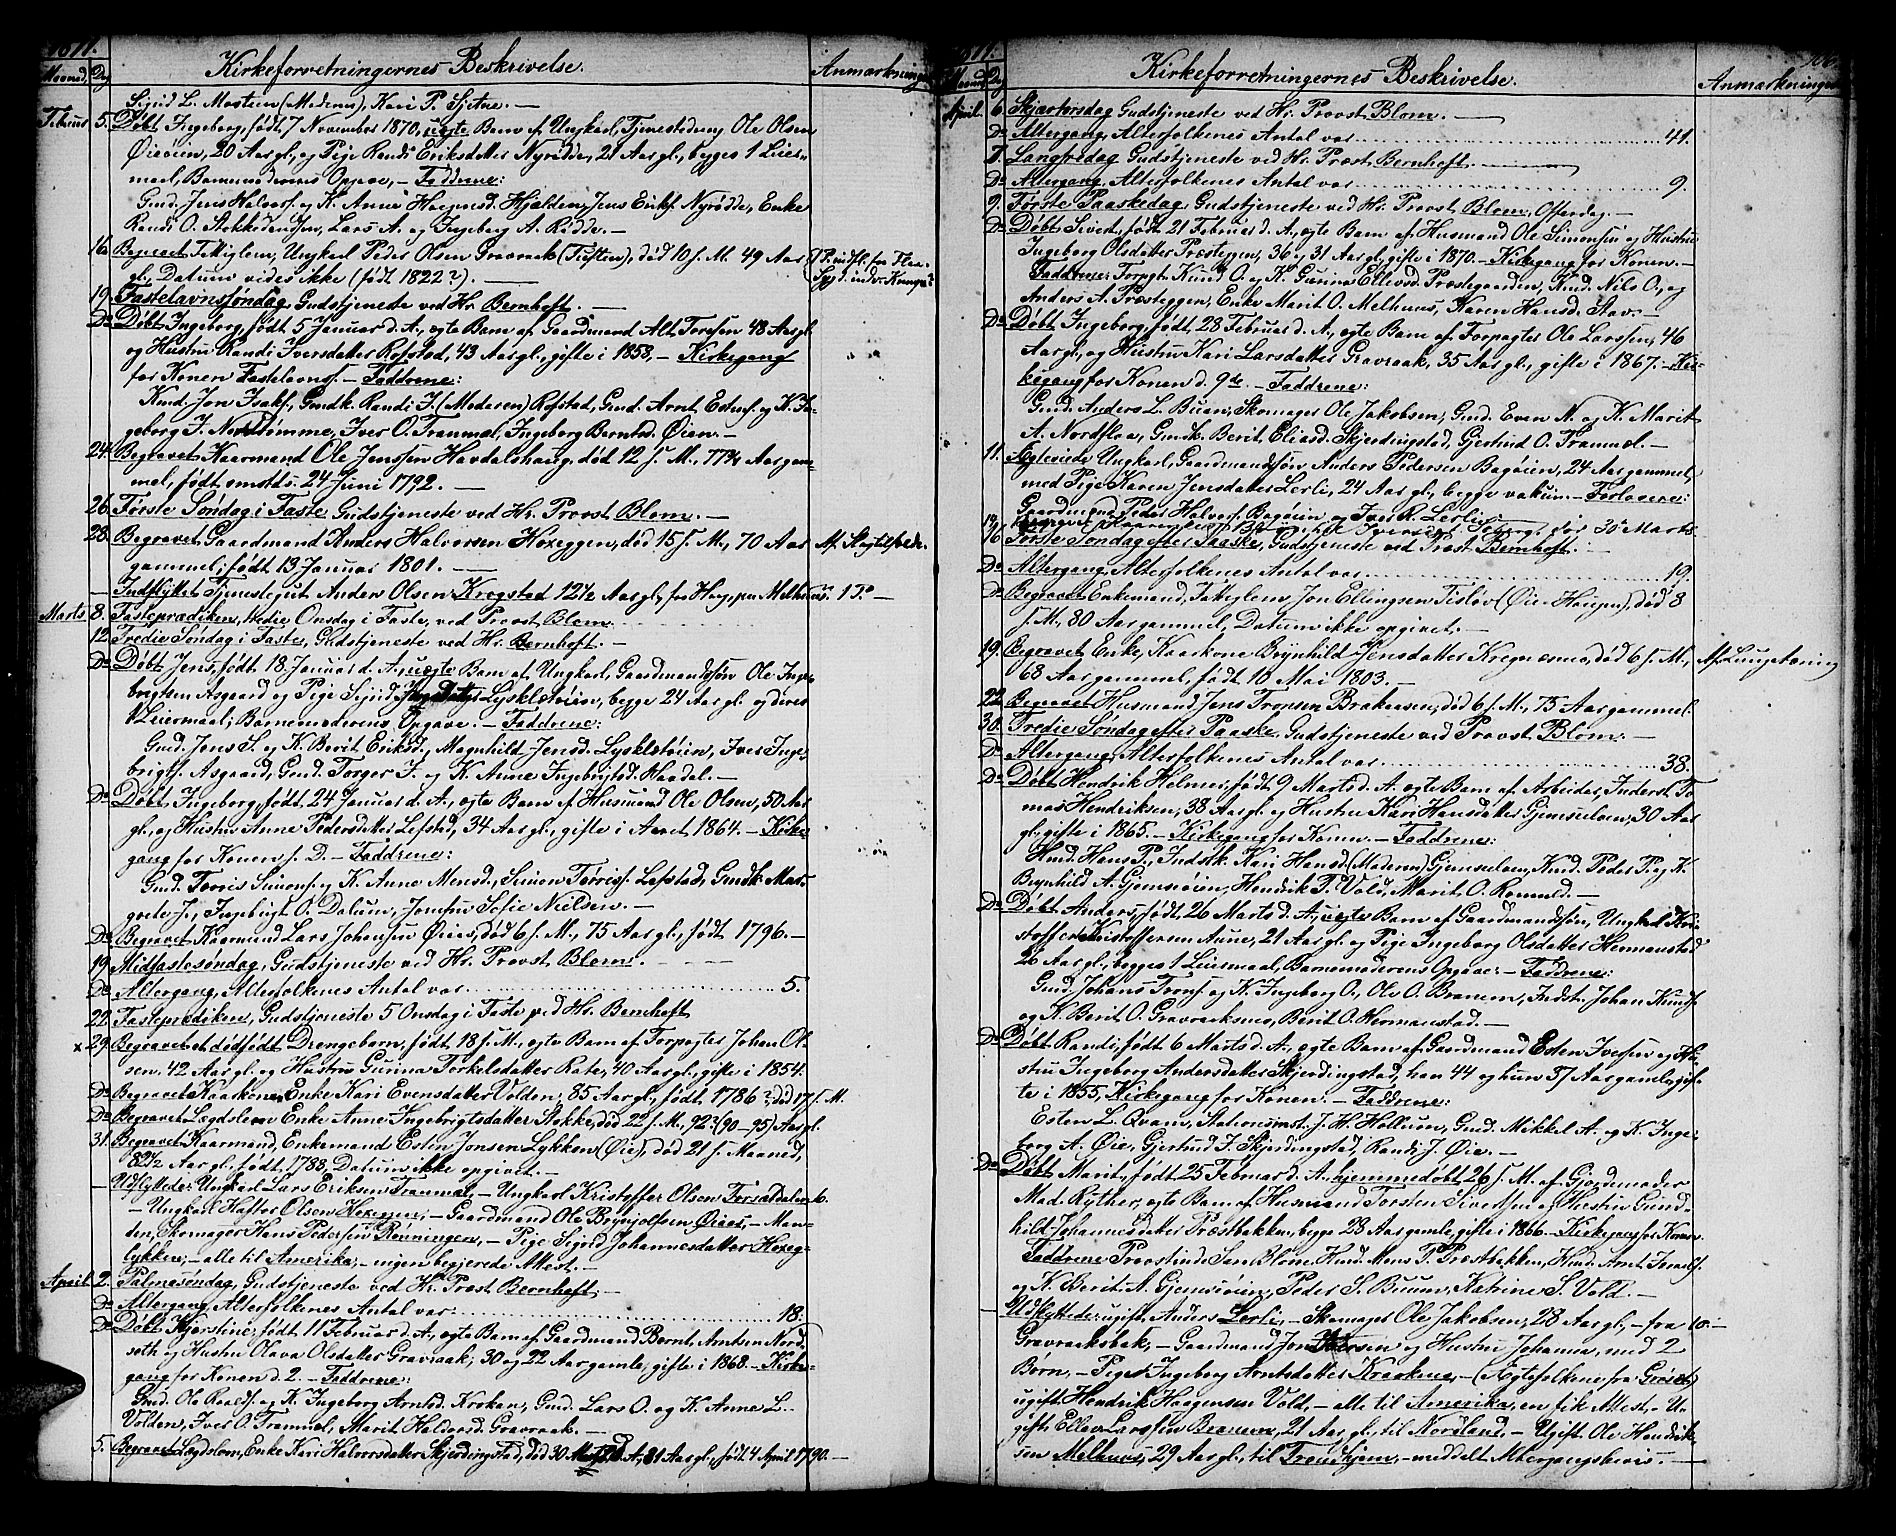 1871.
Maaned. Dag Kirkeforretningernes Beskrivelse. Anmærkninger
Sigrid L. Mosteen (Moderen) Kari P. Sjetne. —
Februar 5. Døbt Ingeborg, født 7 November 1870, uægte Barn af Ungkarl, Tjenestedreng Ole Olsen
Øieøien, 20 Aar gl., og Pige Randi Eriksdatter Nyrødde, 21 Aar gl., begges 1 Leier-
maal, Barnemoderens Opgave, — Faddrene:
Gmd. Jens Halvorsf. og K. Anne Haagensd. Hjalden, Jens Eriksf. Nyrødde, Enke
Randi O. Stokkedensen, Lars A. og Ingeborg A. Rødde. —
16. Begravet Ungkarl Peder Olsen Gravraak (Tusten), død 10 f. M. 49 Aar
gl., Datum vides ikke (født 1822?). —
19. Fastelavnsføndag, Gudstjeneste ved Hr. Bernhoft. —
Do Døbt Ingeborg, født 5 Januar d. A., ægte Barn af Gaardmand Alt Toresen 48 Aar gl.
og Hustru Randi Iversdatter Rofstad, 43 Aar gl., gifte i 1853. — Kirkegang
for Konen Fastelavnsf. — Faddrene:
Gmd. Jon Isaksf., Gmdk. Randi J. (Moderen) Rofstad, Gmd. Arnt Estensf. og K. In-
geborg J. Nordtømme, Iver O. Tranmæl, Ingeborg Berntsd. Øien. —
24. Begravet Kaarmand Ole Jenssen Havdalshaug, død 12 f. M., 77¾ Aar gam-
mel, født omstds. 24 Juni 1792. —
26. Første Søndag i Faste Gudstjeneste ved Hr. Provst Blom. —
28. Begravet Gaardmand Anders Halvorsen Hoxeggen, død 15 f. M., 70 Aar Af Slagtilfælde.
gammel; født 13 Januar 1801. —
— Indflyttet Tjenestegut Anders Olsen Krogstad 12½ Aar gl., fra Høg, pr. Melhuus. 1 P. —
Marts 8. Fasteprædiken, tredie Onsdag i Faste, ved Provst Blom.
12. Tredie Søndag i Faste, Gudstjeneste ved Hr. Bernhoft. —
Do Døbt Jens, født 18 Januar d. A., uægte Barn af Ungkarl, Gaardmandssøn Ole Inge-
brigtsen Aagaard og Pige Sigrid Lyskletøien, begge 24 Aar gl. og deres
1 Leiermaal; Barnemoderens Opgave. — Faddrene:
Gmd. Jens S. og K. Berit Eriksd., Magnhild Jensd. Lyskletøien, Iver Inge-
brigtsf. Aagaard, Gmd. Torger J. og K. Anne Ingebrigtsd. Havdal. —
Do Døbt Ingeborg, født 24 Januar d. A., ægte Barn af Husmand Ole Olsen, 50 Aar
gl., og Hustru Anne Pedersdatter Løfstad, 34 Aar gl., gifte i Aaret 1864. — Kirke-
gang for Konen f. D. — Faddrene:
Gmd. Torris Simonsf. og K. Anne Mensd., Simon Torrisf. Løfstad, Gmdk. Mar-
grete J., Ingebrigt O. Dalum, Jomfru Sofie Nielsen. —
Do Begravet Kaarmand Lars Johnsen Øiaas, død 6 f. M., 75 Aar gl., født 1796. —
19. Midfastesøndag, Gudstjeneste ved Hr. Provst Blom. —
Do Altergang, Alterfolkenes Antal var 5.
22. Fasteprædiken, Gudstjeneste 5 Onsdag i Faste ved Hr. Bernhoft
x 29. Begravet et dødfødt Drengebarn, født 18 f. M., ægte Barn af Forpagter Johan Ol-
sen, 42 Aar gl. og Hustru Gunna Torkelsdatter Rate, 40 Aar gl., gifte i 1854.
Do Begravet Kaarkone, Enke Kari Evensdatter Volden, 85 Aar gl., født 1786?, død 17 f. M.
Do Begravet Lægdslem Enke Anne Ingebrigtsdatter Stokke, død 22 f. M., 92? (90-95) Aar gl.
31. Begravet Kaarmand, Enkemand Esten Jonsen Lykken (Øie), død 21 f. Maaned,
82½ Aar gl., født 1788, Datum ikke opgivet. —
— Udflyttede: Ungkarl Lars Eriksen Tranmæl, — Ungkarl Kristoffer Olsen Forsætdalen 6.
— Ungkarl Hafter Olsen Hoxegen, — Gaardmand Ole Brynjolfsen Øiaas, —
Skomager Hans Pedersen Rønningen, — Pige Sigrid Johannesdatter Hoxeg-
lykken, — alle til Amerika, — ingen begjerede Attest. —
April 2. Palmesøndag, Gudstjeneste ved Hr. Præst Bernhoft. —
Do Altergang, Alterfolkenes Antal var 18.
Do Døbt Kjerstine, født 11 Februar d. A., ægte Barn af Gaardmand Bernt Arntsen Nord-
seth og Hustru Olava Olsdatter Gravraak, 30 og 22 Aar gamle, gifte i 1868. — Kirke-
gang for Konen d. 2. — Faddrene:
Gmd. Ole Roalsf. og K. Ingeborg Arntsd. Krokan, Gmd. Lars O. og K. Anne L.
Volden, Iver O. Tranmæl, Marit Haldorsd. Gravraak. —
5. Begravet Lægdslem, Enke Kari Halvorsdatter Skjerdingstad, død 30 Marts d. A., 81 Aar gl., født 4 April 1790. —
1871.
Maaned Dag Kirkeforretningernes Beskrivelse. Anmærkninger
April. 6. Skjærtorsdag Gudstjeneste ved Hr. Provst Blom. —
Do Altergang, Alterfolkenes Antal var 41.
7. Langfredag Gudstjeneste ved Hr. Præst Bernhoft. —
Do Altergang, Alterfolkenes Antal var 9.
9. Første Paaskedag, Gudstjeneste ved Hr. Provst Blom, Offerdag. —
Do Døbt Sivert, født 21 Februar d. A., ægte Barn af Husmand Ole Simonsen og Hustru
Ingeborg Olsdatter Præsteggen, 36 og 31 Aar gl., gifte i 1870. — Kirkegang for Konen. —
Faddrene: Forpgt. Knud O. og K. Gunna Ellevsd. Præstegaarden, Knd. Nils O. og
Anders A. Præsteggen, Enke Marit O. Melhuus, Karen Hansd. Stav. —
Do Døbt Ingeborg, født 28 Februar d. A., ægte Barn af Forpagter Ole Larssen, 46
Aar gl., og Hustru Kari Larsdatter Gravraak, 35 Aar gl., gifte i 1867. — Kir-
kegang for Konen d. 9de. — Faddrene:
Gmd. Anders L. Buan, Skomager Ole Jakobsen, Gmd. Even N. og K. Marit
A. Nordfloa, Gmdk. Berit Eliasd. Skjerdingstad, Gjertrud O. Tranmæl. —
11. Ægteviede Ungkarl, Gaardmandssøn Anders Pedersen Bagøien, 24 Aar gammel,
med Pige Karen Jensdatter Lerli, 24 Aar gl., begge vakcin. — Forlovere:
Gaardmænd Peder Halvorsf. Bagøien og Iver R. Lerli. —
16 Første Søndag efter Paaske, Gudstjeneste ved Præst Bernhoft. —
Do Altergang, Alterfolkenes Antal var 19.
Do Begravet Enkemand, Jon Ellingsen Tislov (Øie-Haugen), død 8
f. M., 80 Aar gammel, Datum ikke opgivet. —
19. Begravet Enke, Kaarkone Brynhild Jensdatter Kregnæsmo, død 6 f. M., Af Lungetæring
68 Aar gammel, født 10 Mai 1803. —
22. Begravet Husmand Jens Tronsen Brakaasen, død 6 f. M., 75 Aar gammel.
30. Tredie Søndag efter Paaske, Gudstjeneste ved Provst Blom. —
Do Altergang, Alterfolkenes Antal var 38.
Do Døbt Hendrik Helmer, født 9 Marts d. A. ægte Barn af Arbeider, Inderst To-
mas Hendriksen, 38 Aar gl. og Hustru Kari Hansdatter Gjemselom, 30 Aar
gl., gifte i 1865. — Kirkegang for Konen. — Faddrene:
Hmd. Hans P., Indstk. Kari Hansd. (Moderen) Gjemselom, Hmd. Peder P. og K.
Brynhild A. Gjemsøien, Hendrik P. Vold, Marit O. Ravnmel. —
Do Døbt Anders, født 26 Marts d. A., uægte Barn af Gaardmandssøn, Ungkarl Kri-
stoffer Kristoffersen Aune, 21 Aar gl. og Pige Ingeborg Olsdatter Hermanstad
26 Aar gl., begges 1 Leiermaal, Barnemoderens Opgave. — Faddrene:
Gmd. Johans Tronsf. og K. Ingeborg O., Ole O. Brauem, Indst. Johan Knudsf.
og K. Berit O. Gravraaksmo, Berit O. Hermanstad. —
Do Døbt Randi, født 6 Marts d. A., ægte Barn af Gaardmand Esten Iversen og Hu-
stru Ingeborg Andersdatter Skjerdingstad, han 44 og hun 37 Aar gamle, gif-
te i 1855, Kirkegang for Konen. — Faddrene:
Esten L. Qvam, Stationsmst. J. H. Hollum, Gmd. Mikkel A. og K. Inge-
borg A. Øie, Gjertrud F. Skjerdingstad, Randi J. Øie. —
Do Døbt Marit, født 25 Februar d. A., hjemmedøbt 26 f. M. af Gjordemoder
Mad. Ryther, ægte Barn af Husmand Torsten Sivertsen og Hustru Gund-
hild Johannesdatter Præstbakken, begge 28 Aar gamle, gifte i 1866. — Kirkegang for Konen.
Faddrene: Provstinde Sara Blom, Husmd. Mons P. Præstbakken, Husmd. Arnt Jensf.
og K. Berit A. Gjemsøien, Peder S. Buum, Katrine S. Vold. —
— Udflyttede: ugift Anders Lerli, — Skomager Ole Jakobsen, 28 Aar gl., — fra 10. —
Gravraaksbak, — Gaardmand Jon Iversen og Hustru Johanna, med 2
Børn, — Pige Ingeborg Arntsdatter Kraakene, — (Ægtefolkene fra Grøset)
ugift Hendrik Haagensen Vold, — alle til Amerika, en fik Attest. — U-
gift, Ellev Larssen Brauem, 21 Aar gl. til Nordland. — Ugift Ole Hendrik-
sen Melhuus, 29 Aar gl., til Trondhjem, — meddelt Altergangsbevis. —